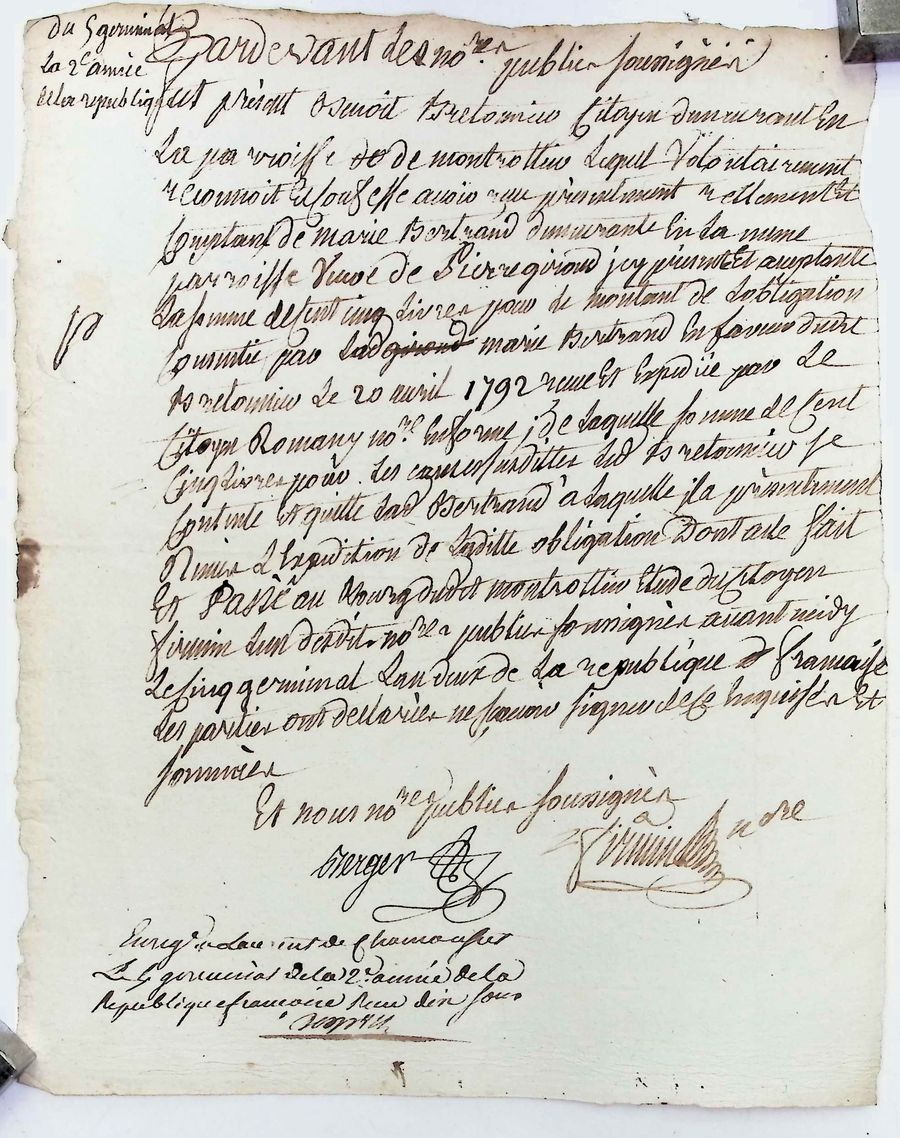 du 5 germinal
la 2e année
de la republique
Pardevant les nores publics soussignés
est présent Benoit Bretonnieu Citoyen demeurant En
La parroisse de de montrottieu Lequel Volontairement
reconnoit et confesse avoir reçu présentement réellement Et
Comptant de marie Bertrand demeurante En La meme
parroisse Veuve de Pierre giroud jcy présente Et acceptante
La somme de cent cinq Livres pour le montant de Lobligation
Consentie par Lad giroud marie Bertrand En faveur dudt
Bretonnieu Le 20 avril 1792 reçue Et Expédiée par Le
Citoyen Romany nore En forme, de Laquelle somme de Cent
Cinq Livres pour Les causes susdittes Led Bretonnieu se
Contente et quitte Lad Bertrand à Laquelle jla présentement
Remis LExpédition de Laditte obligation Dont acte fait
Et Passé au Bourg dudt montrottieu Etude du Citoyen
firmin Lun desdits nores publics soussignés avant midy
Le cinq germinal Lan deux de La republique française
Les parties ont déclarées ne sçavoir signer de ce Enquisés Et
sommées
Et nous nores publics soussignés
Berger
firmin nore
Enregé a Laurent de Chamousset
Le 5 germinal de la 2e année de la
Republique francaise Reçu dix sous